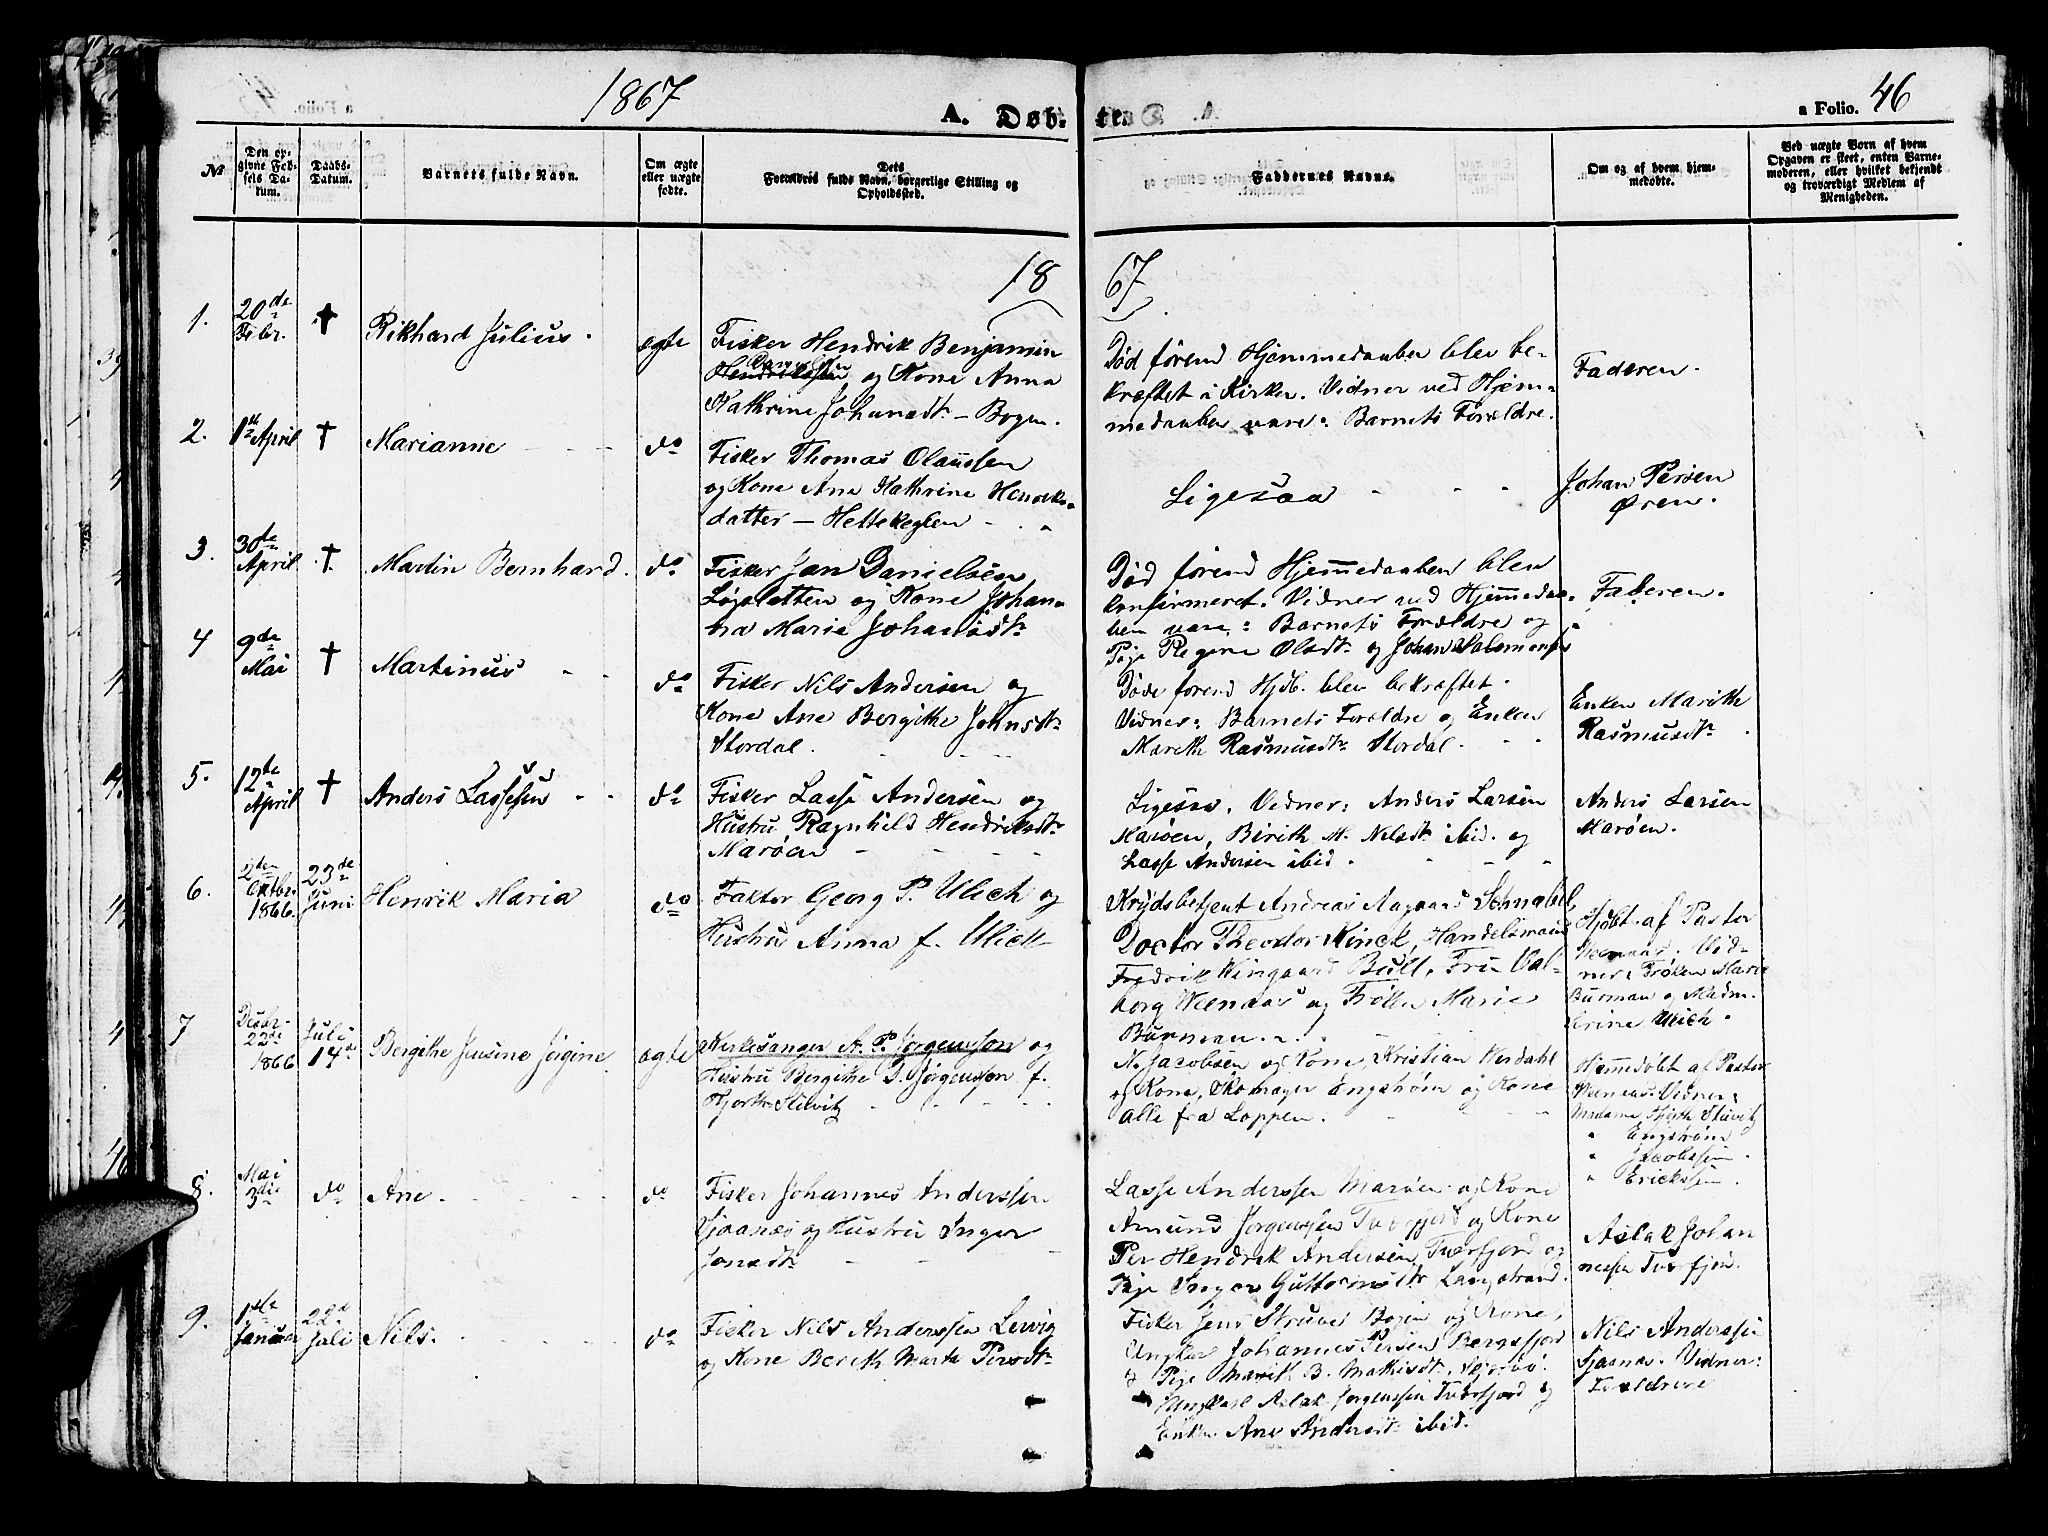 1867
A. Døb-
te.
a Folio. 46
№
Den opgivne Fødsels Datum.
Daabs-Datum.
Barnets fulde Navn.
Om ægte eller uægte fødte.
Dets Forældres fulde Navn, borgerlige Stilling og Opholdssted.
Faddernes Navne.
Om og af hvem hjemmedøbte.
Ved uægte Børn af hvem Opgaven er skeet, enten Barnemoderen, eller hvilket bekjendt og troværdigt Medlem af Menigheden.
18
67.
1.
20de
Febr.
†
Rikhard Julius.
egte
Fisker Hendrik Benjamin
og Kone Anna
Kathrine Johansdt - Bogen.
Død førend Hjemmedaaben blev be-
kræftet i Kirken. Vidner ved Hjem-
medaaben vare: Barnets Forældre.
Faderen.
2.
1ste April
†
Marianne
do
Fisker Thomas Olaussen
og Kone Ane Kathrine Henriks-
datter -
Ligesaa
Johan Persen
Øren.
3.
30te
April
†
Martin Bernhard.
do
Fisker Jan Danielsen,
Løgsletten og Kone Johan-
na Maria Johansdt
Død førend Hjemmedaaben blev
konfirmeret. Vidner ved Hjemmedaa-
ben vare: Barnets Forældre og
Pige Regine Olsdt og Johan Salomonsen
Faderen.
4
9de
Mai
†
Martinus
do
Fisker Nils Andersen og
Kone Ane Bergithe Johnsdt
Stordal.
Døde førend Hjdb. blev bekræftet.
Vidner: Barnets Forældre og Enken
Marith Rasmusdt Stordal.
Enken Marith
Rasmusdt
5.
12te
April
†
Anders Lassesen
do
Fisker Lasse Andersen og
Hustru Ragnhild Hendriksdt
Marøen
Ligesaa. Vidner: Anders Larsen
Marøen, Birith M. Nilsdt ibid. og
Lasse Andersen ibid.
Anders Larsen
Marøen.
6.
2den
Oktbr.
1866.
23de
Juni
Henrik Maria
do
Faktor Georg P. Ulich og
Hustru Anna f. Ulich
Krydsbetjent Andreas Aagaard Schnabel,
Doctor Theodor Kinck, Handelsmand
Fredrik Wingaard Bull, Fru Val-
borg Weenaas og Frøken Marie
Burman
Hjdbt. af Pastor
Weenaas. Vid-
ner: Frøken Marie
Burman og Madm.
Serine Ulich.
7
Desbr.
22de
1866
Juli
14de
Bergithe Jensine Jørgine
ægte
Kirkesanger A. P. Jørgensson og
Hustru Bergithe D. Jørgensson f.
Hjorth Stuvitz
N. Jacobsen og Kone, Kristian Werdahl
og Kone, Skomager Engstrøm og Kone
alle fra Loppen.
Hjemmedøbt af Pastor
Weenaas. Vidner:
Madame Hjorth Stuvitz
" Engstrøm
" Jacobsen.
" Ericksen.
8.
Mai
3die
do
Ane.
do
Fisker Johannes Anderssen
og Hustru Inger
Jonsdt
Lasse Anderssen Marøen og Kone
Amund Jørgenssen Tverfjord og Kone
Per Hendrik Andersen, Tverfjord og
Pige Inger Guttormsdt Langstrand.
Aslak Johan
nessen Tverfjord.
9.
1ste
Januar
22de
Juli
Nils.
do
Fisker Nils Anderssen Lervig
og Kone Berith Marta Persdt
Fisker Jens Struve Bogen og Kone,
Ungkar Johannes Persen Bergsfjord
& Pige Marith B. Mathisdt,
Ungkarl Aslak Jørgenssen Tverfjord og
Enken Ane Andersdt ibid.
Nils Anderssen
Vidner:
Forældrene